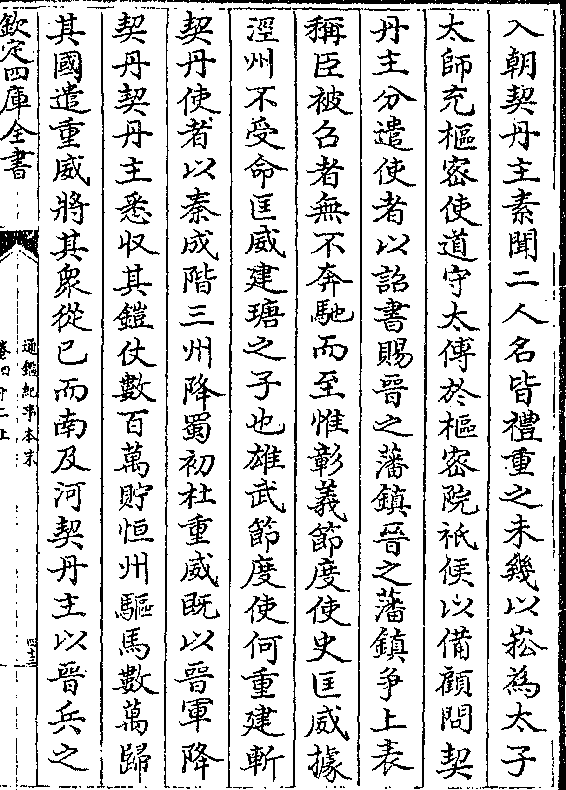 入朝契丹主素聞二人名皆禮重之未幾以崧為太子
太師充樞密使道守太傅於樞密院祇候以備顧問契
丹主分遣使者以詔書賜晉之藩鎮晉之藩鎮爭上表
稱臣被召者無不奔馳而至惟彰義節度使史匡威據
涇州不受命匡威建瑭之子也雄武節度使何重建斬
契丹使者以秦成階三州降蜀初杜重威既以晉軍降
契丹契丹主悉收其鎧仗數百萬貯恒州驅馬數萬歸
其國遣重威將其衆從已而南及河契丹主以晉兵之
欽定四庫全書
通鑑紀事本末
卷四十二上
四十三